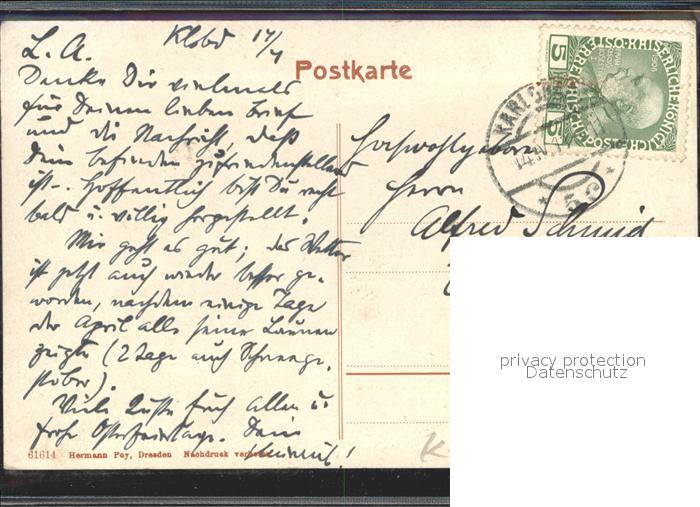 Klsbd 14/4
L. A.
Postkarte
Danke Dir vielmals
für Deinen lieben Brief
und die Nachricht, daß
Dein befinden zufriedenstellend
ist. Hoffentlich bist Du recht
bald u. völlig hergestellt.
Mir geht es gut; das Wetter
ist jetzt auch wieder besser ge-
worden, nachdem einige Tage
der April alle seine Launen
zeigte (2 Tage auch Schneege-
stöber).
Viele Grüße Euch allen u.
frohe Osterfeiertage. Dein
Heinrich!
61614 Hermann Poy, Dresden Nachdruck verboten
Hochwohlgeboren
Herrn
Alfred Schmid
5
5
1908
KARLSBAD
privacy protection
Datenschutz
K